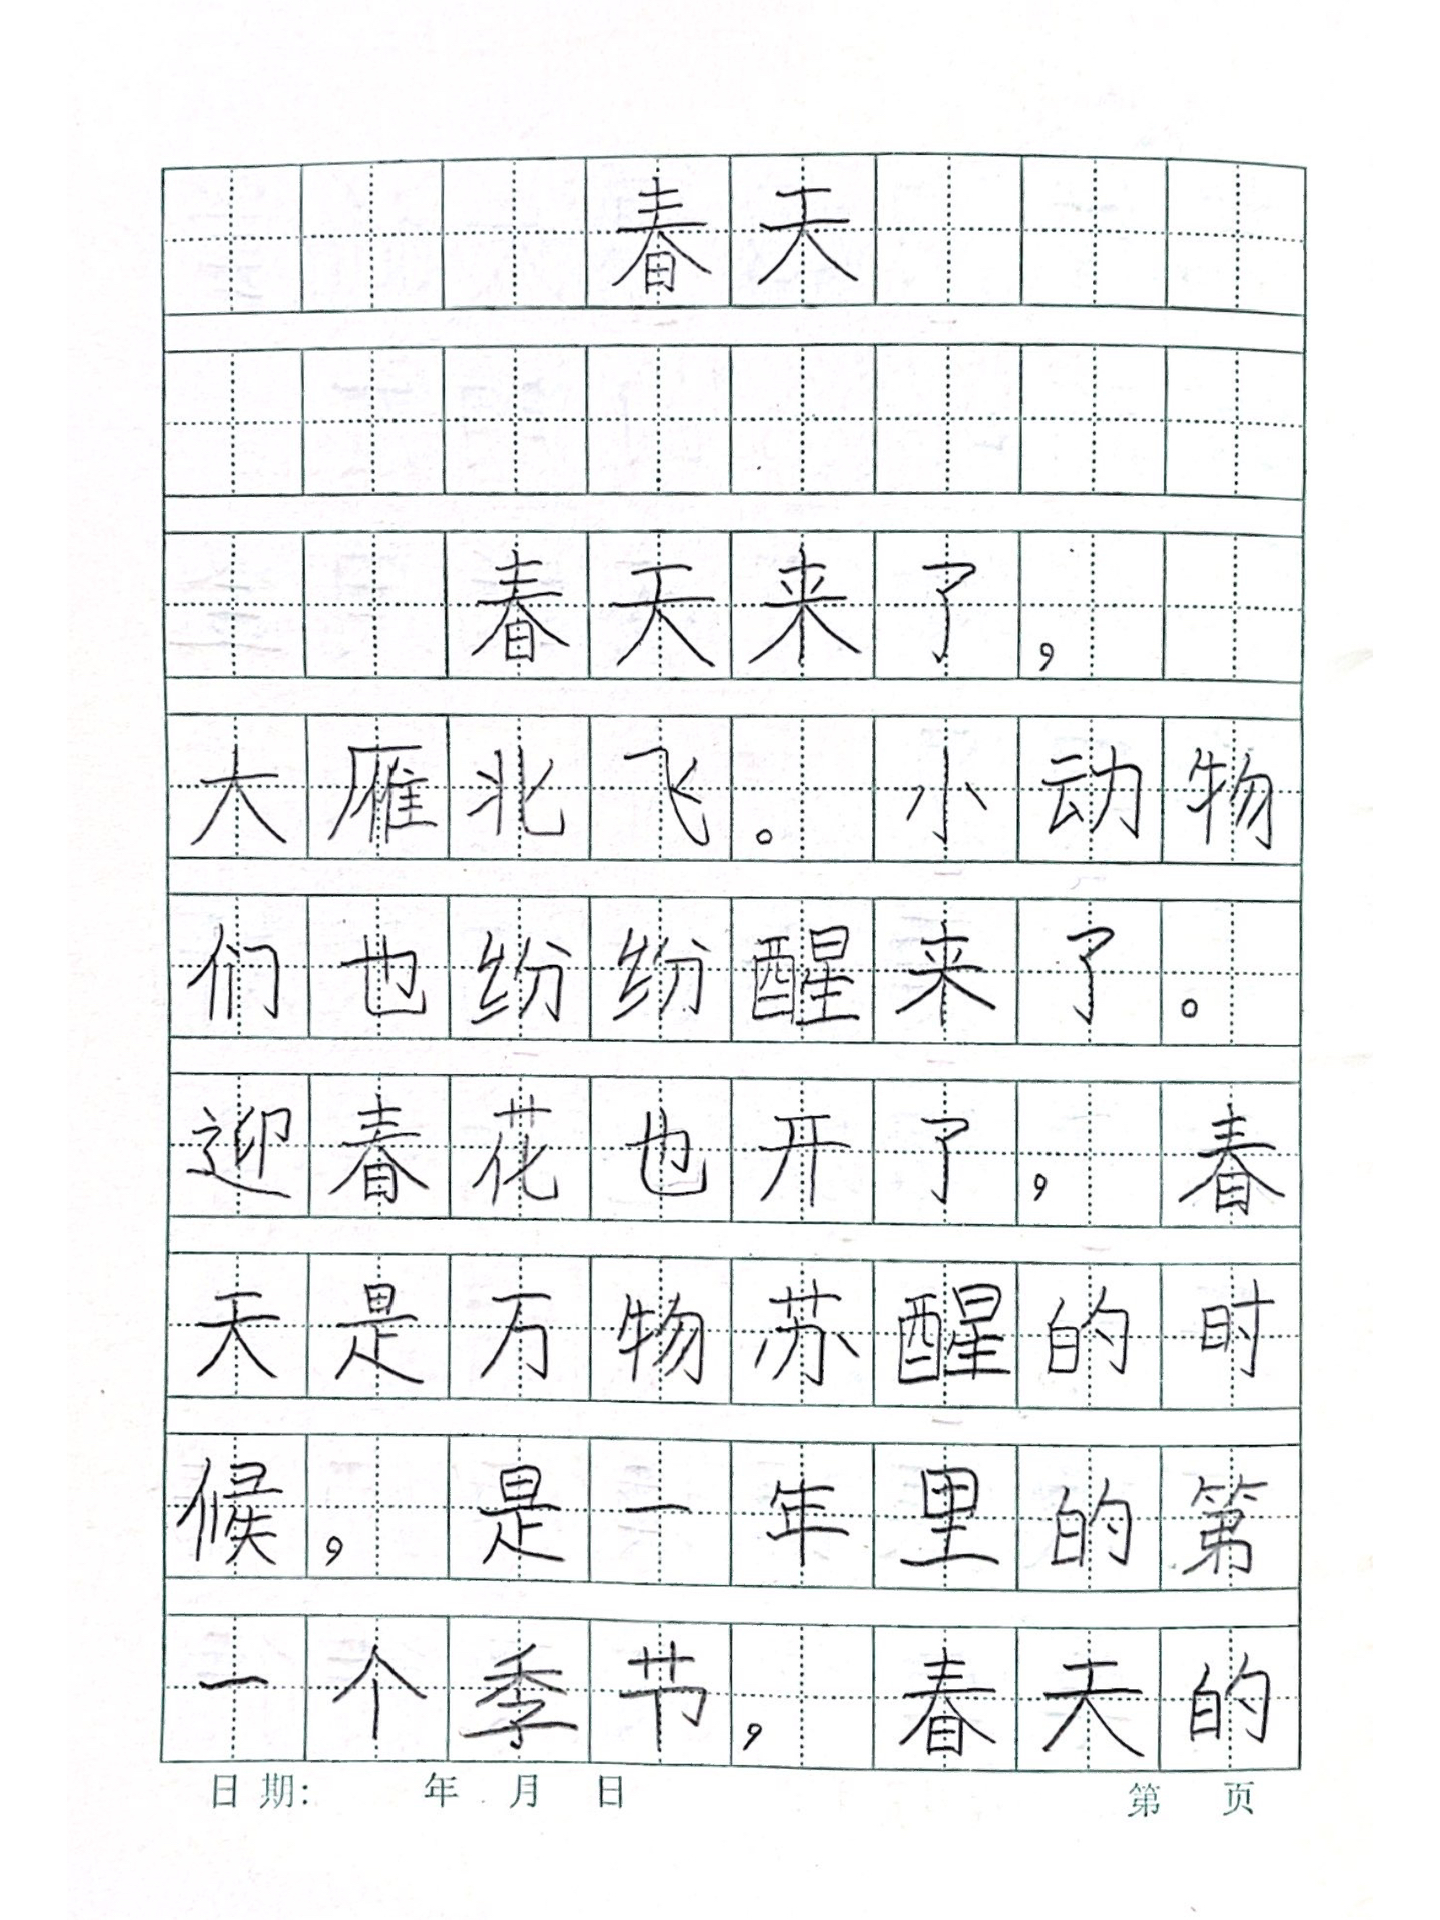 春天
春天来了，
大雁北飞。小动物
们也纷纷醒来了。
迎春花也开了，春
天是万物苏醒的时
候，是一年里的第
一个季节，春天的
日期:　　年　月　日　　第　页